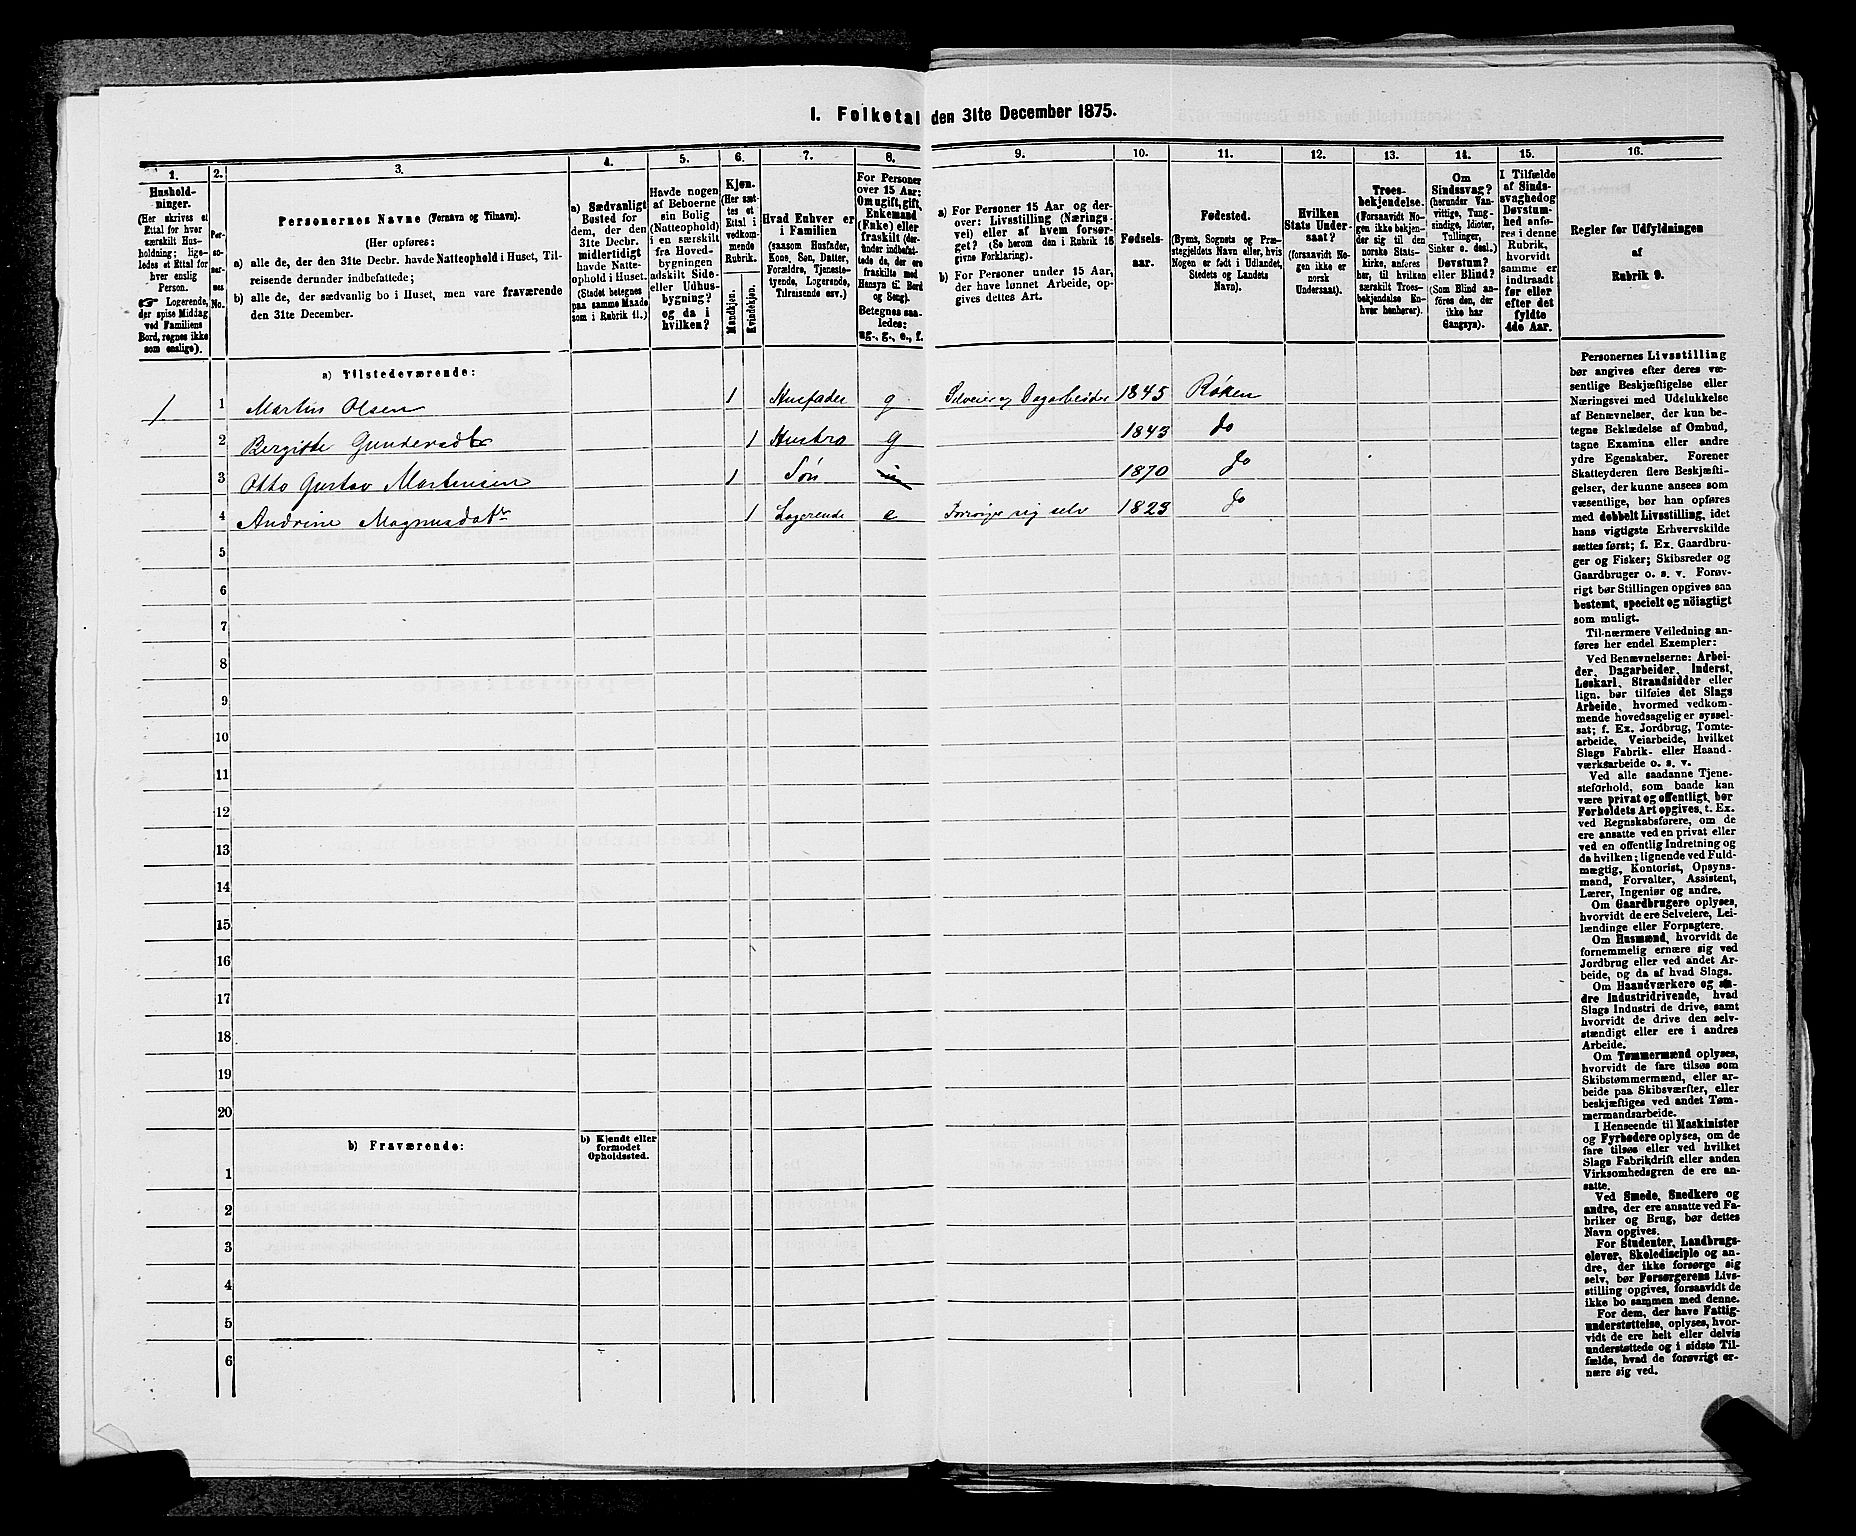 1. Folketal den 31te December 1875.
1.
Hushold-
ninger.
(Her skrives et
Ettal for hver
særskilt Hus-
holdning; lige-
ledes et Ettal for
hver enslig
Person.
☞ Logerende,
der spise Middag
ved Familiens
Bord, regnes ikke
som enslige).
2.
Per-
soner-
nes
No.
3.
Personernes Navne (Fornavn og Tilnavn).
(Her opføres:
a) alle de, der den 31te Decbr. havde Natteophold i Huset, Til-
reisende derunder indbefattede;
b) alle de, der sædvanlig bo i Huset, men vare fraværende
den 31te December.
4.
a) Sædvanligt
Bosted for
dem, der den
31te Decbr.
midlertidigt
havde Natte-
ophold i Huset.
(Stedet betegnes
paa samme Maade
som i Rubrik 11.)
5.
Havde nogen
af Beboerne
sin Bolig
(Natteophold)
i en særskilt
fra Hoved-
bygningen
adskilt Side-
eller Udhus-
bygning?
og da i
hvilken?
6.
Kjøn.
(Her sæt-
tes et
Ettal i
vedkom-
mende
Rubrik.
Mandkjøn.
Kvindekjøn.
7.
Hvad Enhver er
i Familien
(saasom Husfader,
Kone, Søn, Datter,
Forældre, Tjeneste-
tyende, Logerende,
Tilreisende osv.)
8.
For Personer
over 15 Aar:
Om ugift, gift,
Enkemand
(Enke) eller
fraskilt (der-
under indbefat-
tede de, der ere
fraskilte med
Hensyn til Bord
og Seng).
Betegnes saa-
ledes:
ug., g., e., f.
9.
a) For Personer 15 Aar og der-
over: Livsstilling (Nærings-
vei) eller af hvem forsør-
get? (Se herom den i Rubrik 16
givne Forklaring).
b) For Personer under 15 Aar,
der have lønnet Arbeide, op-
gives dettes Art.
10.
Fødsels-
aar.
11.
Fødested.
(Byens, Sognets og Præ-
stegjeldets Navn eller, hvis
Nogen er født i Udlandet,
Stedets og Landets
Navn).
12.
Hvilken
Stats Under-
saat?
(forsaavidt No-
gen ikke er
norsk
Undersaat).
13.
Troes-
bekjendelse.
(Forsaavidt No-
gen ikke bekjen-
der sig til den
norske Stats-
kirke, anføres
her, til hvilken
særskilt Troes-
bekjendelse En-
hver henhører).
14.
Om
Sindssvag?
(herunder Van-
vittige, Tung-
sindige, Idioter,
Tullinger,
Sinker o. desl.)
Døvstum?
eller Blind?
(Som Blind an-
føres den, der
ikke har
Gangsyn).
15.
I Tilfælde
af Sinds-
svaghed og
Døvstum-
hed anfø-
res i denne
Rubrik,
hvorvidt
samme er
indtraadt
før eller
efter det
fyldte
4de Aar.
16.
Regler for Udfyldningen
af
Rubrik 9.
a) Tilstedeværende:
1 1 Martin Olsen 1 Husfader g Selveier og Dagarbeider 1845 Røken
2 Bergitte Gundersdtr 1 Hustro g 1843 do
3 Otto Gustav Martensen 1 Søn 1870 do
4 Andrine Magnusdatr 1 Logerende e Forsørger sig selv 1823 do
5
6
7
8
9
10
11
12
13
14
15
16
17
18
19
20
b) Fraværende:
b) Kjendt eller
formodet
Opholdssted.
1
2
3
4
5
6
Personernes Livsstilling
bør angives efter deres væ-
sentlige Beskjæftigelse eller
Næringsvei med Udelukkelse
af Benævnelser, der kun be-
tegne Beklædelse af Ombud,
tagne Examina eller andre
ydre Egenskaber. Forener
Skatteyderen flere Beskjæfti-
gelser, der kunne ansees som
væsentlige, bør han opføres
med dobbelt Livsstilling, idet
hans vigtigste Erhvervskilde
sættes først; f. Ex. Gaardbru-
ger og Fisker; Skibsreder og
Gaardbruger o. s. v. Forøv-
rigt bør Stillingen opgives saa
bestemt, specielt og nöiagtigt
som muligt.
Til nærmere Veiledning an-
føres her endel Exempler:
Ved Benævnelserne: Arbei-
der, Dagarbeider, Inderst,
Løskarl, Strandsidder eller
lign. bør tilføies det Slags
Arbeide, hvormed vedkom-
mende hovedsagelig er syssel-
sat; f. Ex. Jordbrug, Tomte-
arbeide, Veiarbeide, hvilket
Slags Fabrik- eller Haand-
værksarbeide o. s. v.
Ved alle saadanne Tjene-
steforhold, som baade kan
være privat og offentligt, bør
Forholdets Art opgives, t. Ex.
ved Regnskabsførere, om de
ere ansatte ved en privat eller
ved en offentlig Indretning og
da hvilken; lignende ved Fuld-
mægtig, Kontorist, Opsyns-
mand, Forvalter, Assistent,
Lærer, Ingeniør og andre.
Om Gaardbrugere oplyses,
hvorvidt de ere Selveiere, Lei-
lændinge eller Forpagtere.
Om Husmænd, hvorvidt de
fornemmelig ernære sig ved
Jordbrug eller ved andet Ar-
beide, og da af hvad Slags.
Om Haandværkere og an-
dre Industridrivende, hvad
Slags Industri de drive, samt
hvorvidt de drive den selv-
stændigt eller ere i andres
Arbeide.
Om Tømmermænd oplyses,
hvorvidt de fare tilsøs som
Skibstømmermænd, eller ar-
beide paa Skibsværfter, eller
beskjæftiges ved andet Tøm-
mermandsarbeide.
I Henseende til Maskinister
og Fyrbødere oplyses, om de
fare tilsøs eller ved hvilket
Slags Fabrikdrift eller anden
Virksomhedsgren de ere an-
satte.
Ved Smede, Snedkere og
andre, der ere ansatte ved Fa-
briker og Brug, bør dettes
Navn opgives.
For Studenter, Landbrugs-
elever, Skoledisciple og an-
dre, der ikke forsørge sig
selv, bør Forsørgerens Livs-
stilling opgives, forsaavidt de
ikke bo sammen med denne.
For dem, der have Fattig-
understøttelse, oplyses, hvor-
vidt de ere helt eller delvis
understøttede og i sidste Til-
fælde, hvad de forøvrigt er-
nære sig ved.